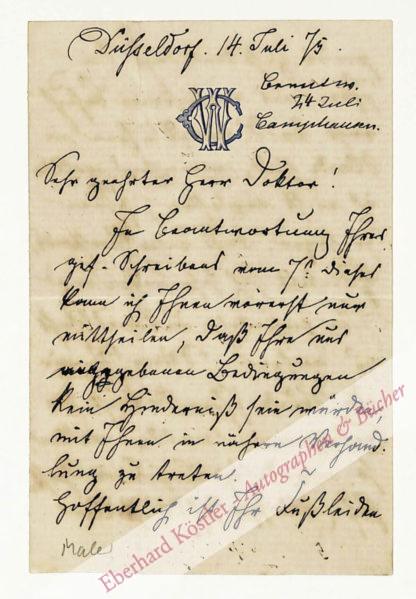 Düsseldorf. 14. Juli 75.
Beantw.
24 Juli
Camphausen.
Sehr geehrter Herr Doktor!
In Beantwortung Ihres
gef. Schreibens vom 7t dieses
kann ich Ihnen vorerst nur
mittheilen, daß Ihre uns
angegebenen Bedingungen
kein Hinderniß sein würden,
mit Ihnen in nähere Verhand-
lung zu treten.
Hoffentlich ist Ihr Fußleiden
Maler
Eberhard Köstler Autographen & Bücher